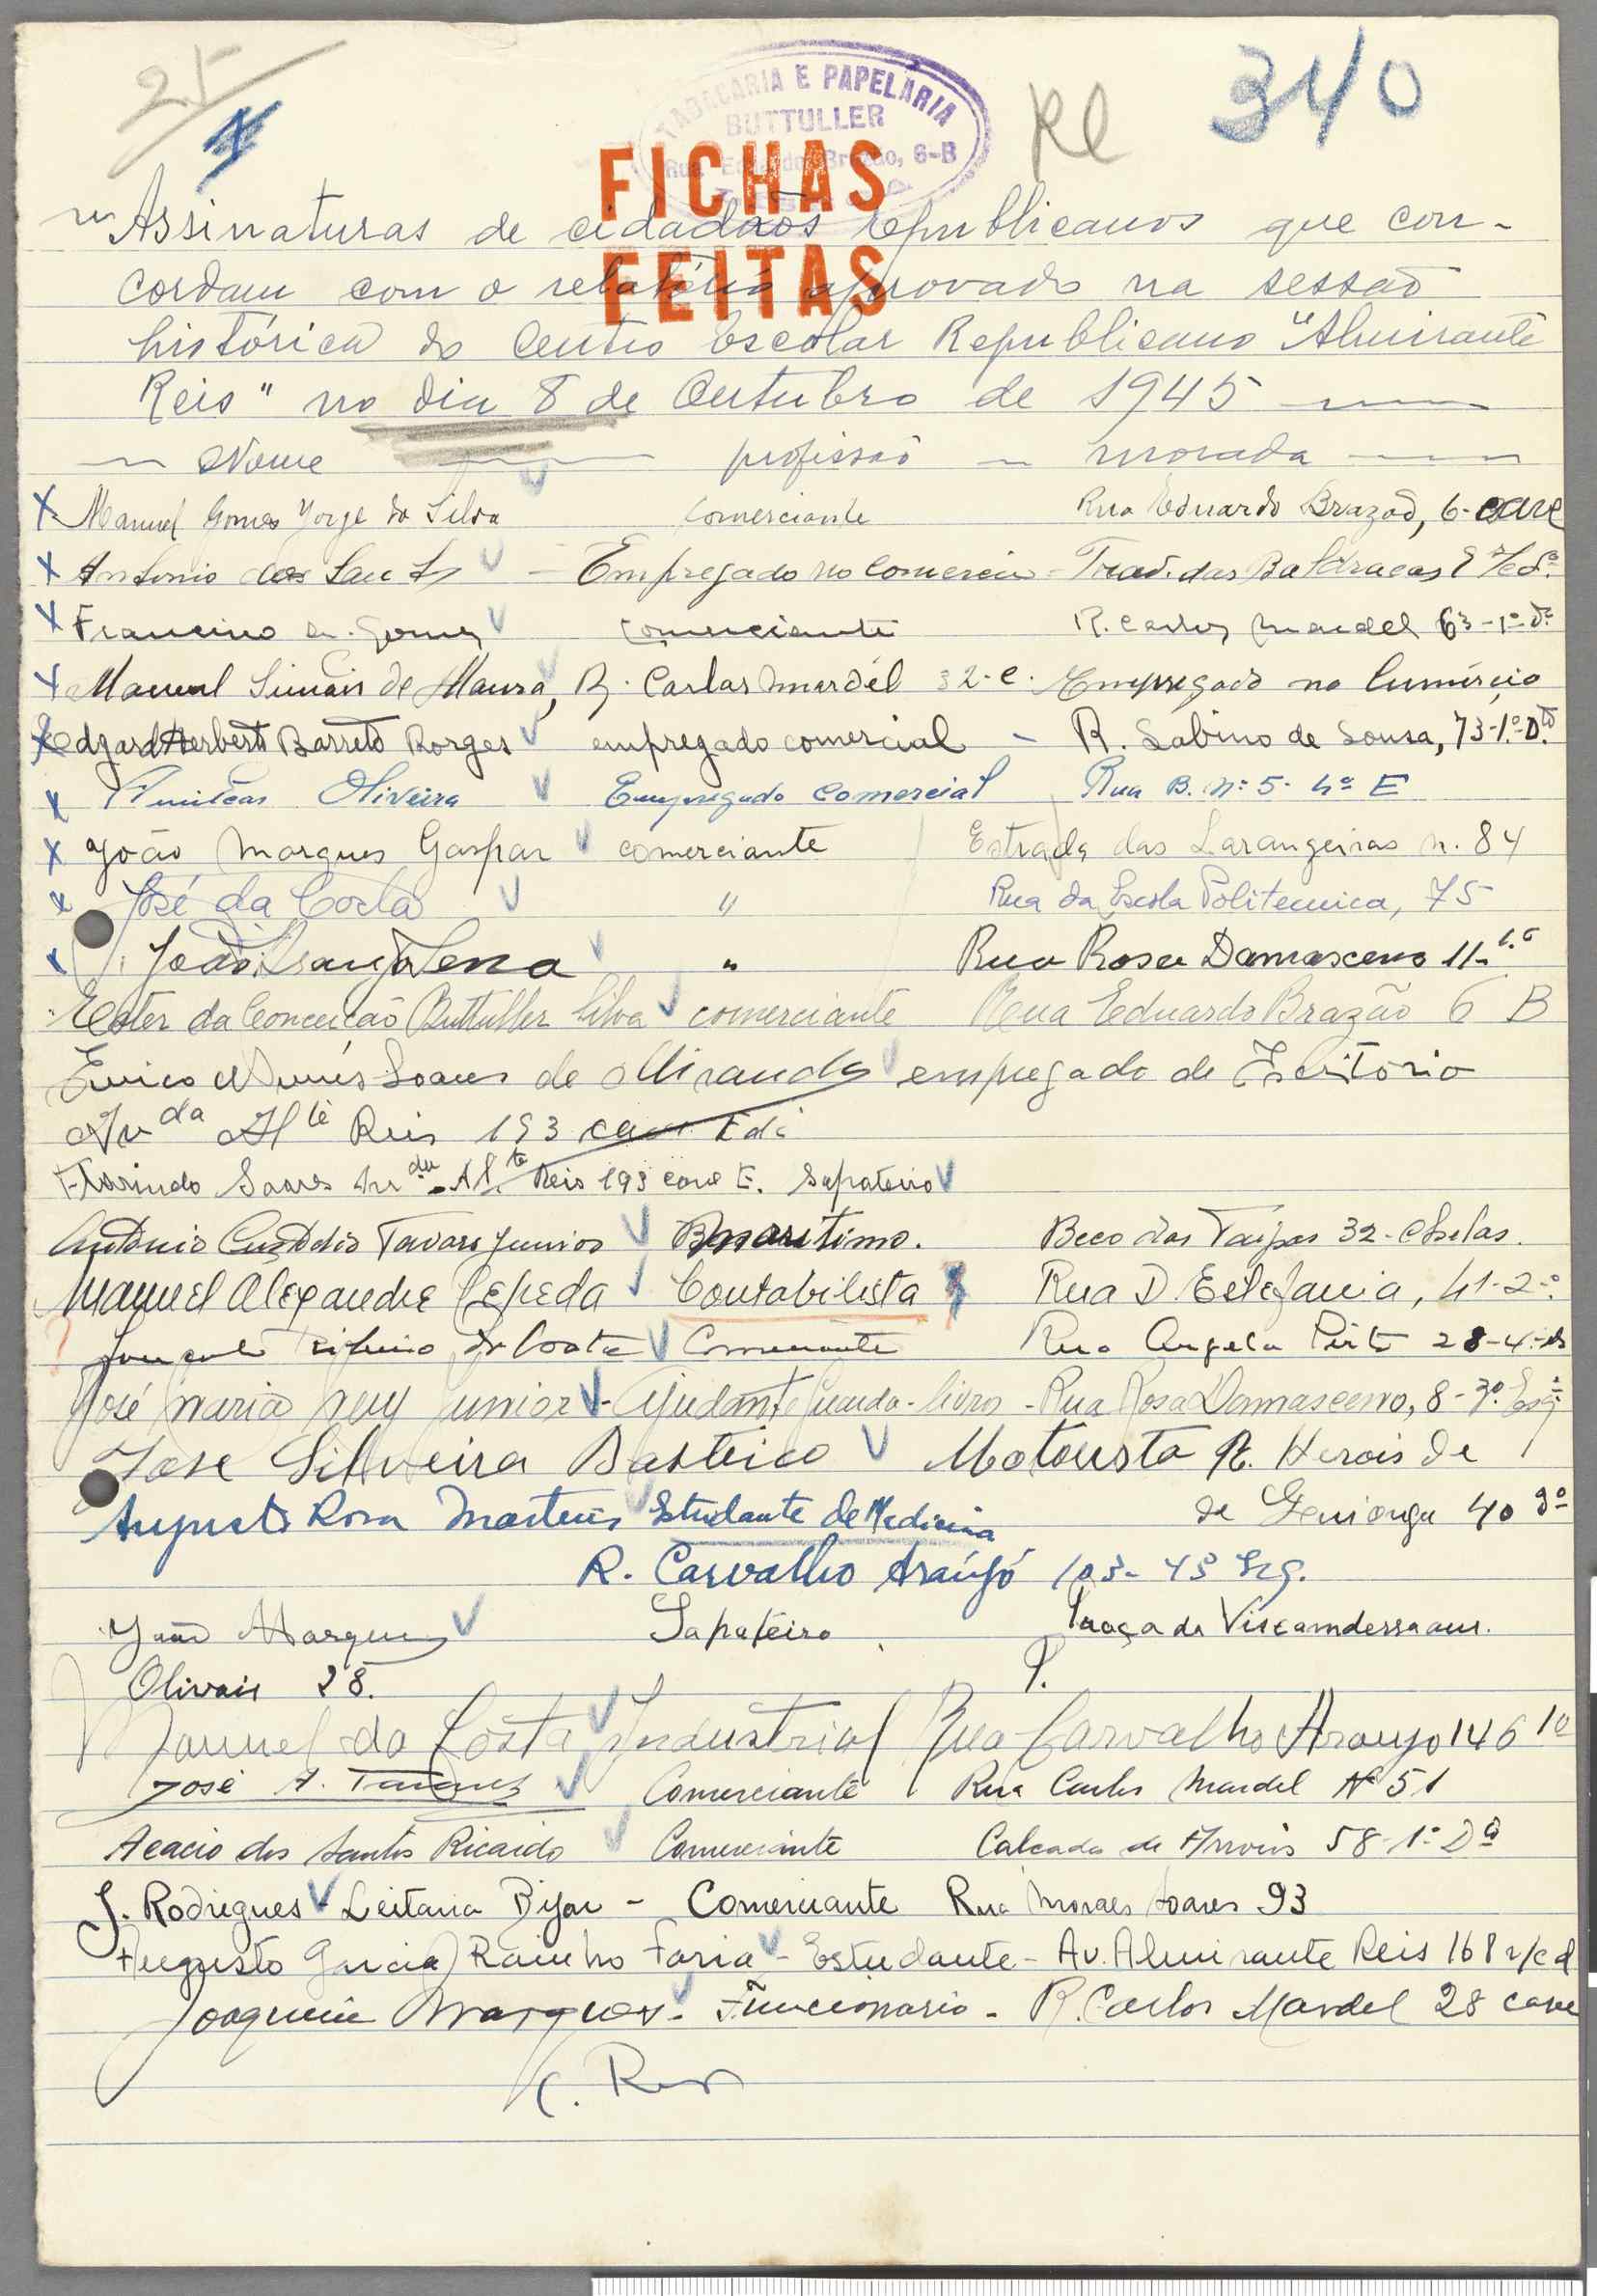 25
340
TABACARIA E PAPELARIA
BUTTULLER
Rua Eduardo Brazão, 6-B
Re
FICHAS
FEITAS
Assinaturas de cidadãos republicanos que con-
cordam com o relatório aprovado na sessão
histórica do Centro Escolar Republicano "Almirante
Reis" no dia 8 de Outubro de 1945
Nome profissão morada
Manuel Gomes Jorge da Silva comerciante Rua Eduardo Brazão, 6-cave
Antonio dos Santos - Empregado no Comercio - Trav. das
Francisco Gomes comerciante R. Carlos Mardel 63-1º-Dº
Manuel Simões de Moura, R. Carlos Mardél 32-C. Empregado no Comércio
Edgard Herberto Barreto Borges empregado comercial - R. Sabino de Sousa, 73-1º-Dto
Amilcar Oliveira Empregado comercial Rua B. nº 5-4º E
João Marques Gaspar comerciante Estrada das Larangeiras n. 84
José da Costa " Rua da Escola Politecnica, 75
João " Rua Rosa Damasceno 11-
Ester da Conceição Buttuller Silva comerciante Rua Eduardo Brazão 6 B
Eurico Soares de Miranda empregado de Escritório
Avda Alte Reis 193
Florindo Soares Avda Alte Reis 193 cave E. Sapateiro
António Custódio Tavares Junior Maritimo. Beco das Taipas 32-Chelas.
Manuel Alexandre Cepeda Contabilista Rua D. Estefania, 41-2º
Ribeiro da Costa Comerciante Rua Angela Pinto 28-4º
José Maria Ruy Junior - Ajudante guarda-livros - Rua Rosa Damasceno, 8-3º Esqº
José Silveira Motorista R. Herois de
Augusto Rosa Martins Estudante de Medicina de 40
R. Carvalho Araújo 103-4º Esq.
João Marques Sapateiro Praça da
Olivais 28.
Manuel da Costa Industrial Rua Carvalho Araujo 146 1º
José A. Comerciante Rua Carlos Mardel Nº 51
Acacio dos Santos Ricardo Comerciante Calçada de Arroios 58-1º Dº
J. Rodrigues Leitaria Bijou - Comerciante Rua Moraes Soares 93
Augusto Garcia Rainho Faria - Estudante - Av. Almirante Reis 168 r/c d
Joaquim Marques - Funcionario - R. Carlos Mardel 28 cave